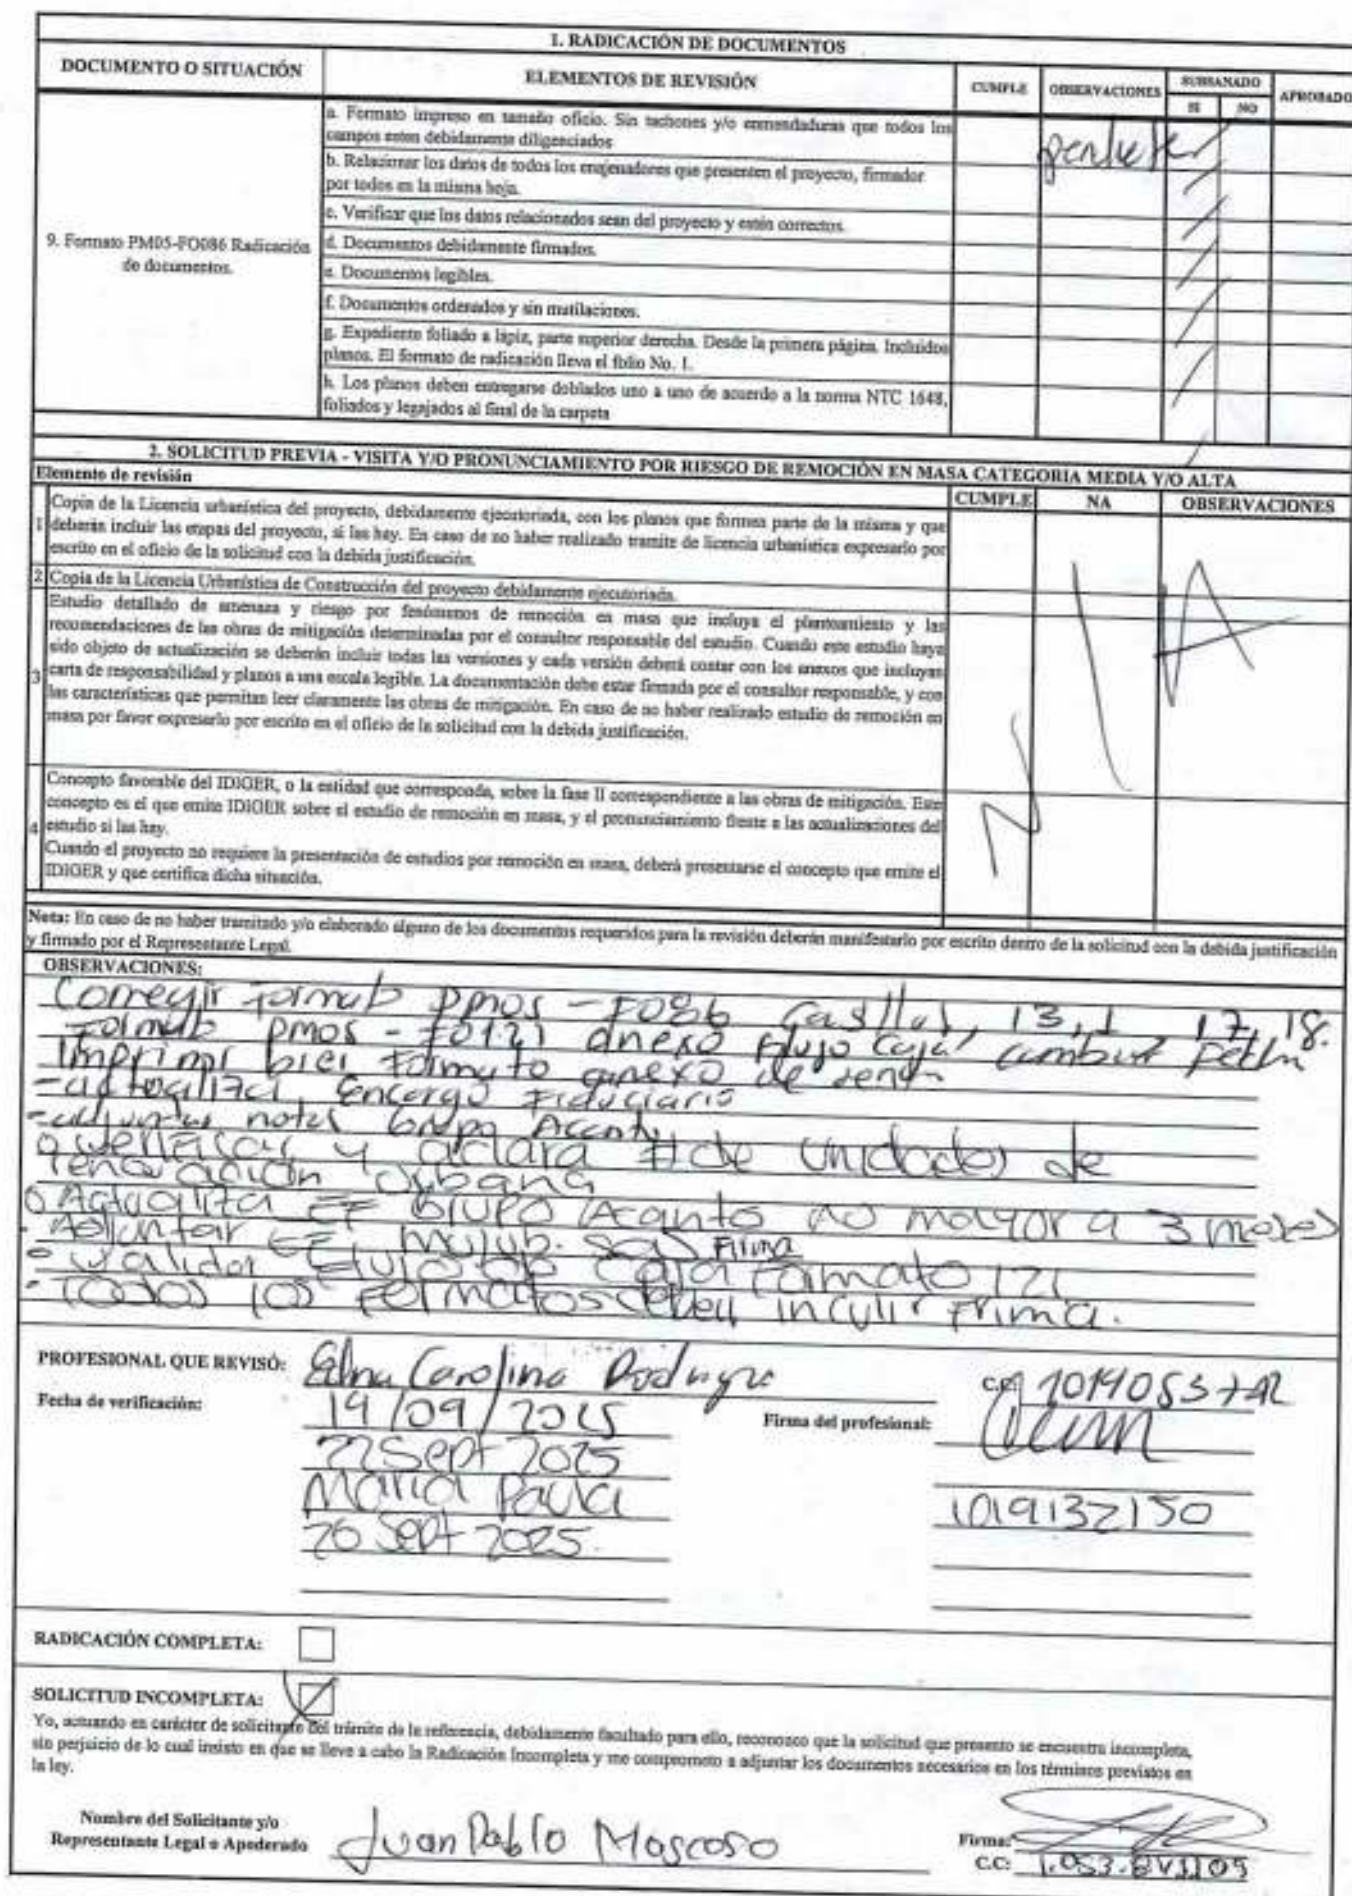 1. RADICACIÓN DE DOCUMENTOS
DOCUMENTO O SITUACIÓN
ELEMENTOS DE REVISIÓN
CUMPLE
OBSERVACIONES
SUBSANADO
SI
NO
APROBADO
9. Formato PM05-FO086 Radicación
de documentos.
a. Formato impreso en tamaño oficio. Sin tachones y/o enmendaduras que todos los
campos esten debidamente diligenciados
b. Relacionar los datos de todos los enajenadores que presenten el proyecto, firmador
por todos en la misma hoja.
c. Verificar que los datos relacionados sean del proyecto y estén correctos.
d. Documentos debidamente firmados.
e. Documentos legibles.
f. Documentos ordenados y sin mutilaciones.
g. Expediente foliado a lápiz, parte superior derecha. Desde la primera página. Incluidos
planos. El formato de radicación lleva el folio No. 1.
h. Los planos deben entregarse doblados uno a uno de acuerdo a la norma NTC 1648,
foliados y legajados al final de la carpeta
2. SOLICITUD PREVIA - VISITA Y/O PRONUNCIAMIENTO POR RIESGO DE REMOCIÓN EN MASA CATEGORIA MEDIA Y/O ALTA
Elemento de revisión
CUMPLE
NA
OBSERVACIONES
1
Copia de la Licencia urbanística del proyecto, debidamente ejecutoriada, con los planos que formen parte de la misma y que
deberán incluir las etapas del proyecto, si las hay. En caso de no haber realizado tramite de licencia urbanística expresarlo por
escrito en el oficio de la solicitud con la debida justificación.
2 Copia de la Licencia Urbanística de Construcción del proyecto debidamente ejecutoriada.
3
Estudio detallado de amenaza y riesgo por fenómenos de remoción en masa que incluya el planteamiento y las
recomendaciones de las obras de mitigación determinadas por el consultor responsable del estudio. Cuando este estudio haya
sido objeto de actualización se deberán incluir todas las versiones y cada versión deberá contar con los anexos que incluyan
carta de responsabilidad y planos a una escala legible. La documentación debe estar firmada por el consultor responsable, y con
las características que permitan leer claramente las obras de mitigación. En caso de no haber realizado estudio de remoción en
masa por favor expresarlo por escrito en el oficio de la solicitud con la debida justificación.
4
Concepto favorable del IDIGER, o la entidad que corresponda, sobre la fase II correspondiente a las obras de mitigación. Este
concepto es el que emite IDIGER sobre el estudio de remoción en masa, y el pronunciamiento frente a las actualizaciones del
estudio si las hay.
Cuando el proyecto no requiere la presentación de estudios por remoción en masa, deberá presentarse el concepto que emite el
IDIGER y que certifica dicha situación.
N / A
Nota: En caso de no haber tramitado y/o elaborado alguno de los documentos requeridos para la revisión deberán manifestarlo por escrito dentro de la solicitud con la debida justificación
y firmado por el Representante Legal.
OBSERVACIONES:
Corregir Formato PM05 - F086 Casillas, 13,1 17,18.
Formato PM05 - F0121 anexo Flujo Caja
Imprimir bien Formato anexo de
- actualiza, Encargo Fiduciario
- adjuntar notas Grupo Acanto
o verificar y aclara # de Unidades de
renovación Urbana
o Actualiza EF Grupo Acanto no mayor a 3 meses
- Adjuntar EF SAS Firma
- Validar Flujo de Caja Formato 121
- Todos los Formatos deben incluir Firma.
PROFESIONAL QUE REVISÓ: Edna Carolina
C.C: 1014053742
Fecha de verificación: 19/09/2025
Firma del profesional:
22 Sept 2025
Maria Paula
1019132150
26 Sept 2025.
RADICACIÓN COMPLETA:
SOLICITUD INCOMPLETA:
Yo, actuando en carácter de solicitante del trámite de la referencia, debidamente facultado para ello, reconozco que la solicitud que presento se encuentra incompleta,
sin perjuicio de lo cual insisto en que se lleve a cabo la Radicación Incompleta y me comprometo a adjuntar los documentos necesarios en los términos previstos en
la ley.
Nombre del Solicitante y/o
Representante Legal o Apoderado
Juan Pablo Moscoso
Firma:
C.C: